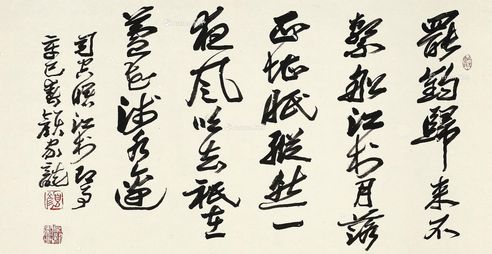 罷釣歸来不
繫船江村月落
正堪眠縱然一
夜風吹去祇在
蘆花淺水邊
司空曙江村即事
辛巳春顏家龍